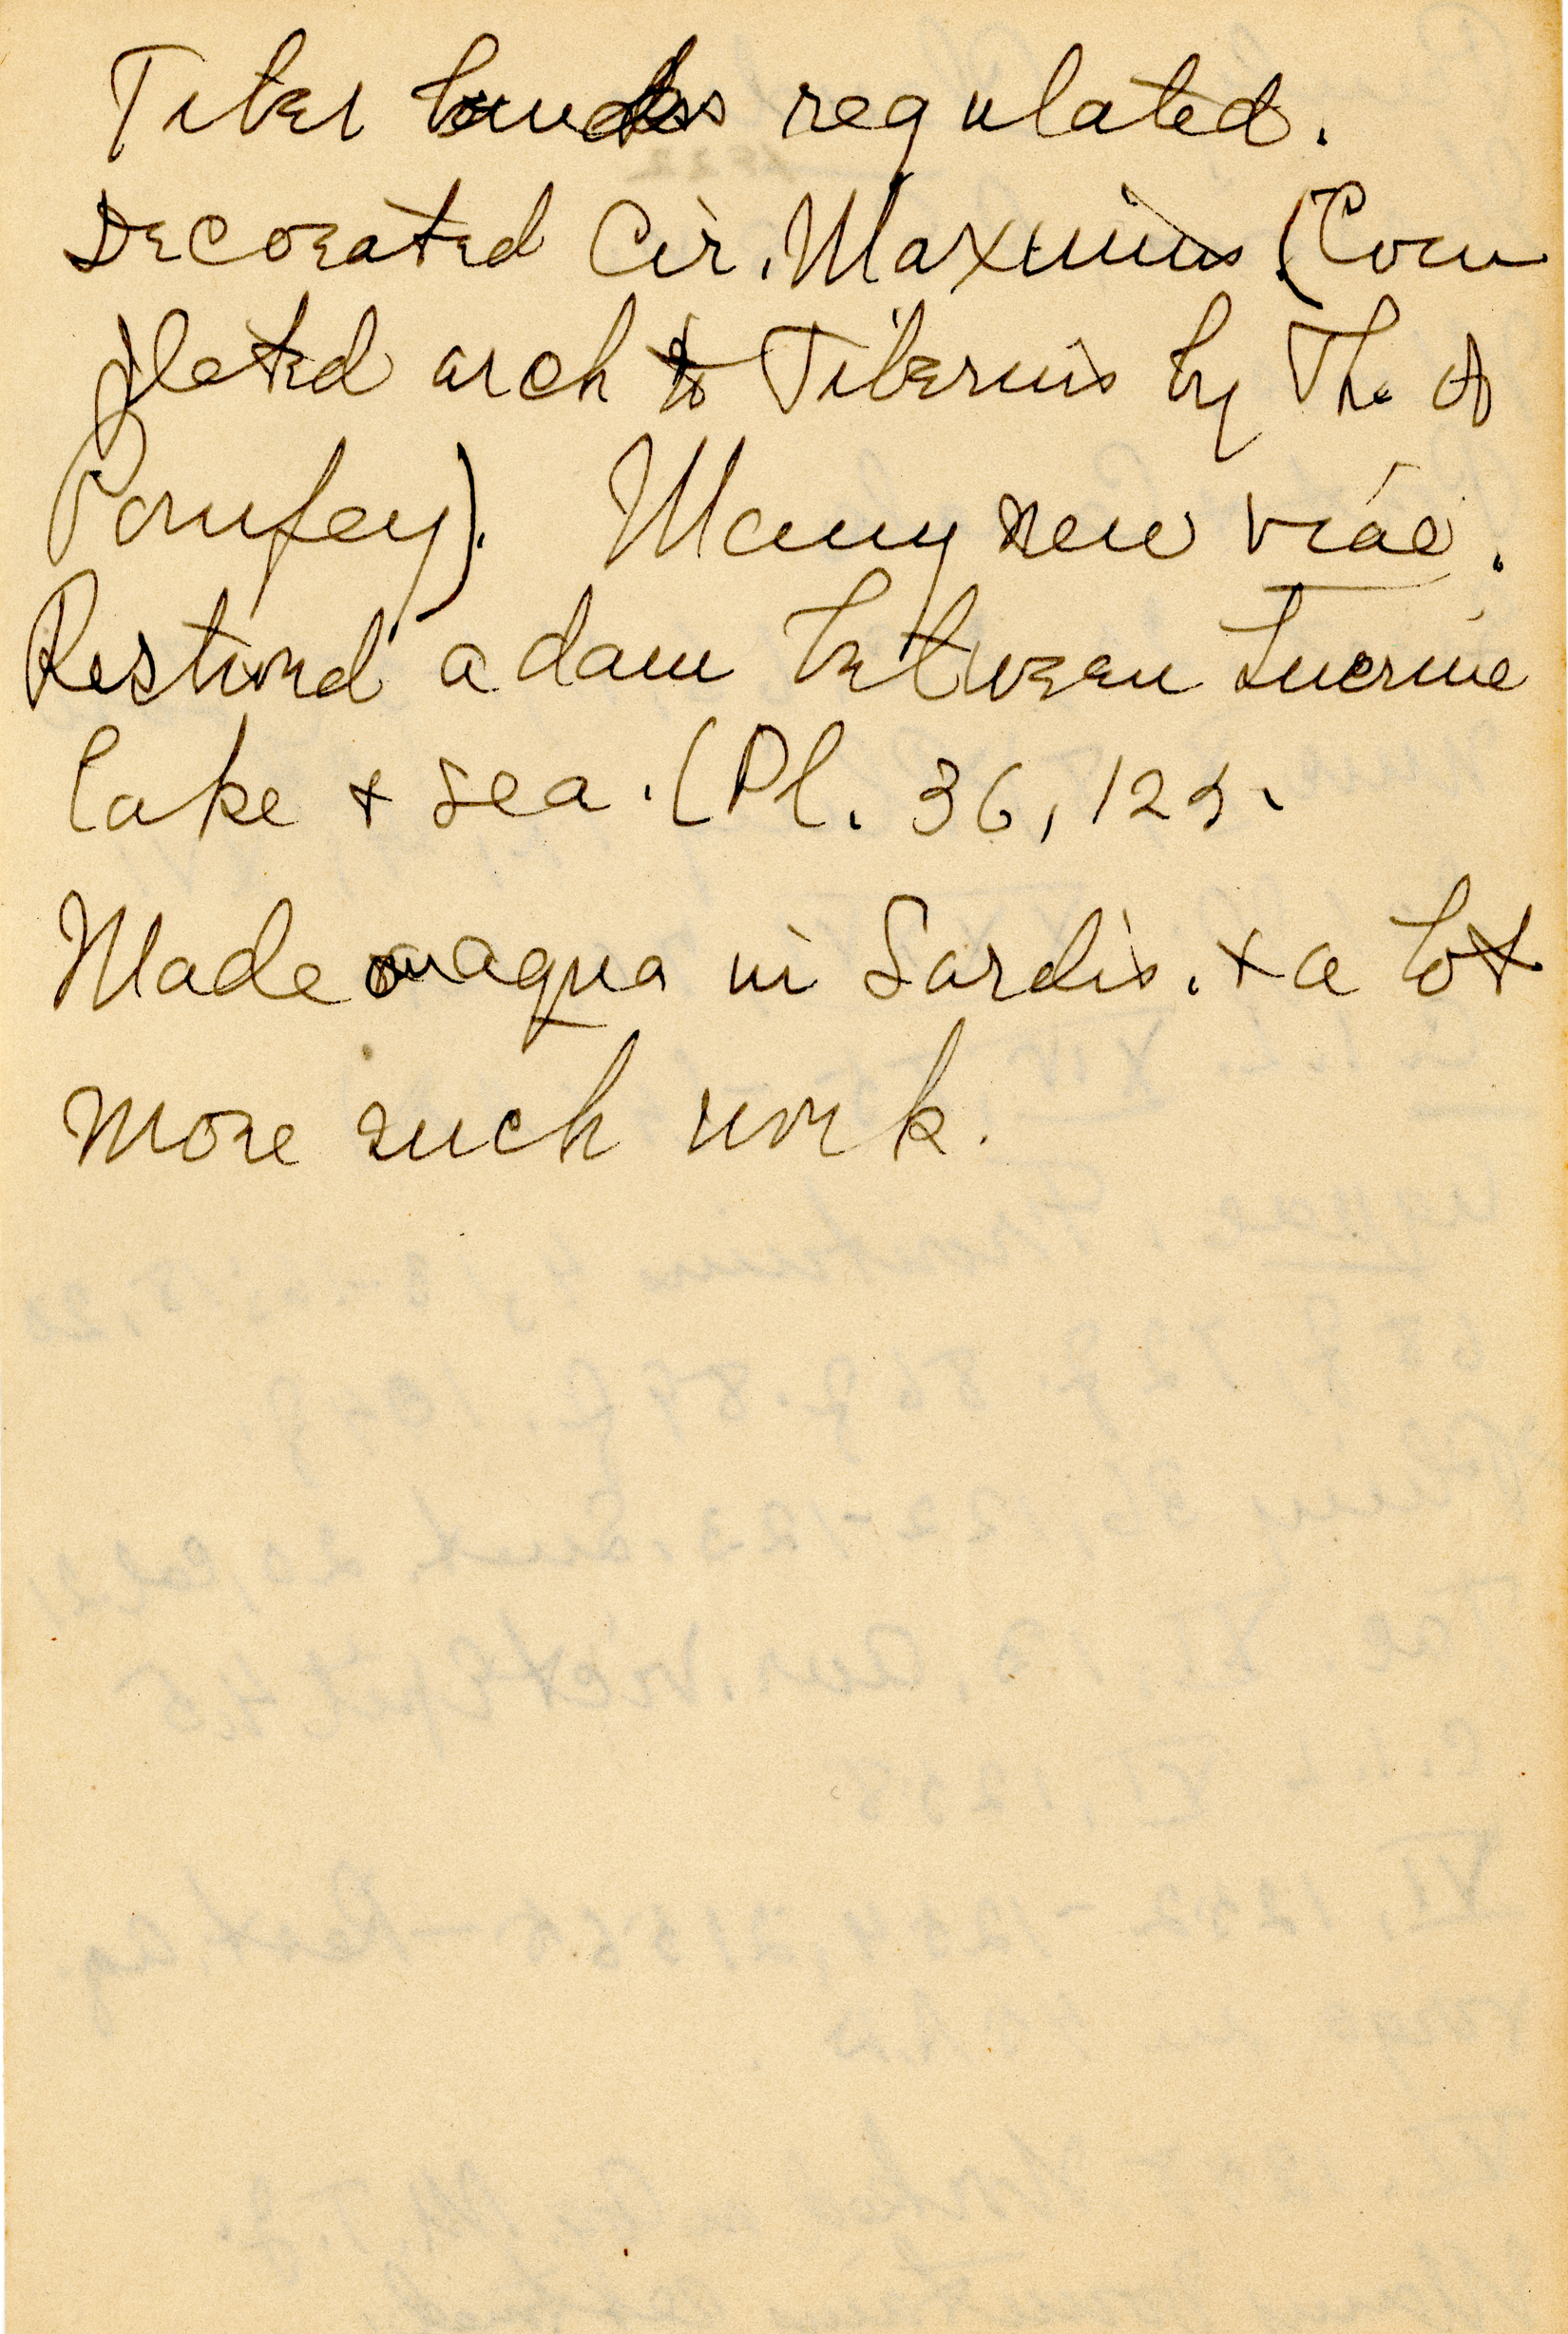 Tiber banks regulated.
Decorated Cir. Maximus (Com
pleted arch to Tiberius by Th. of
Pompey). Many new viae.
Restored a dam between Lucrine
lake + sea. (Pl. 36, 125.
Made an aqua in Sardis. + a lot
more such work.